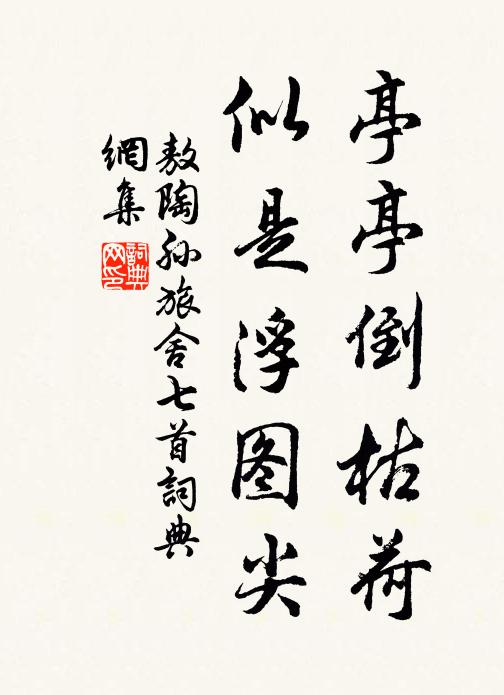 亭亭倒枯荷
似是浮图尖
敖陶孙旅舍七首詞典
網集
詞典网印